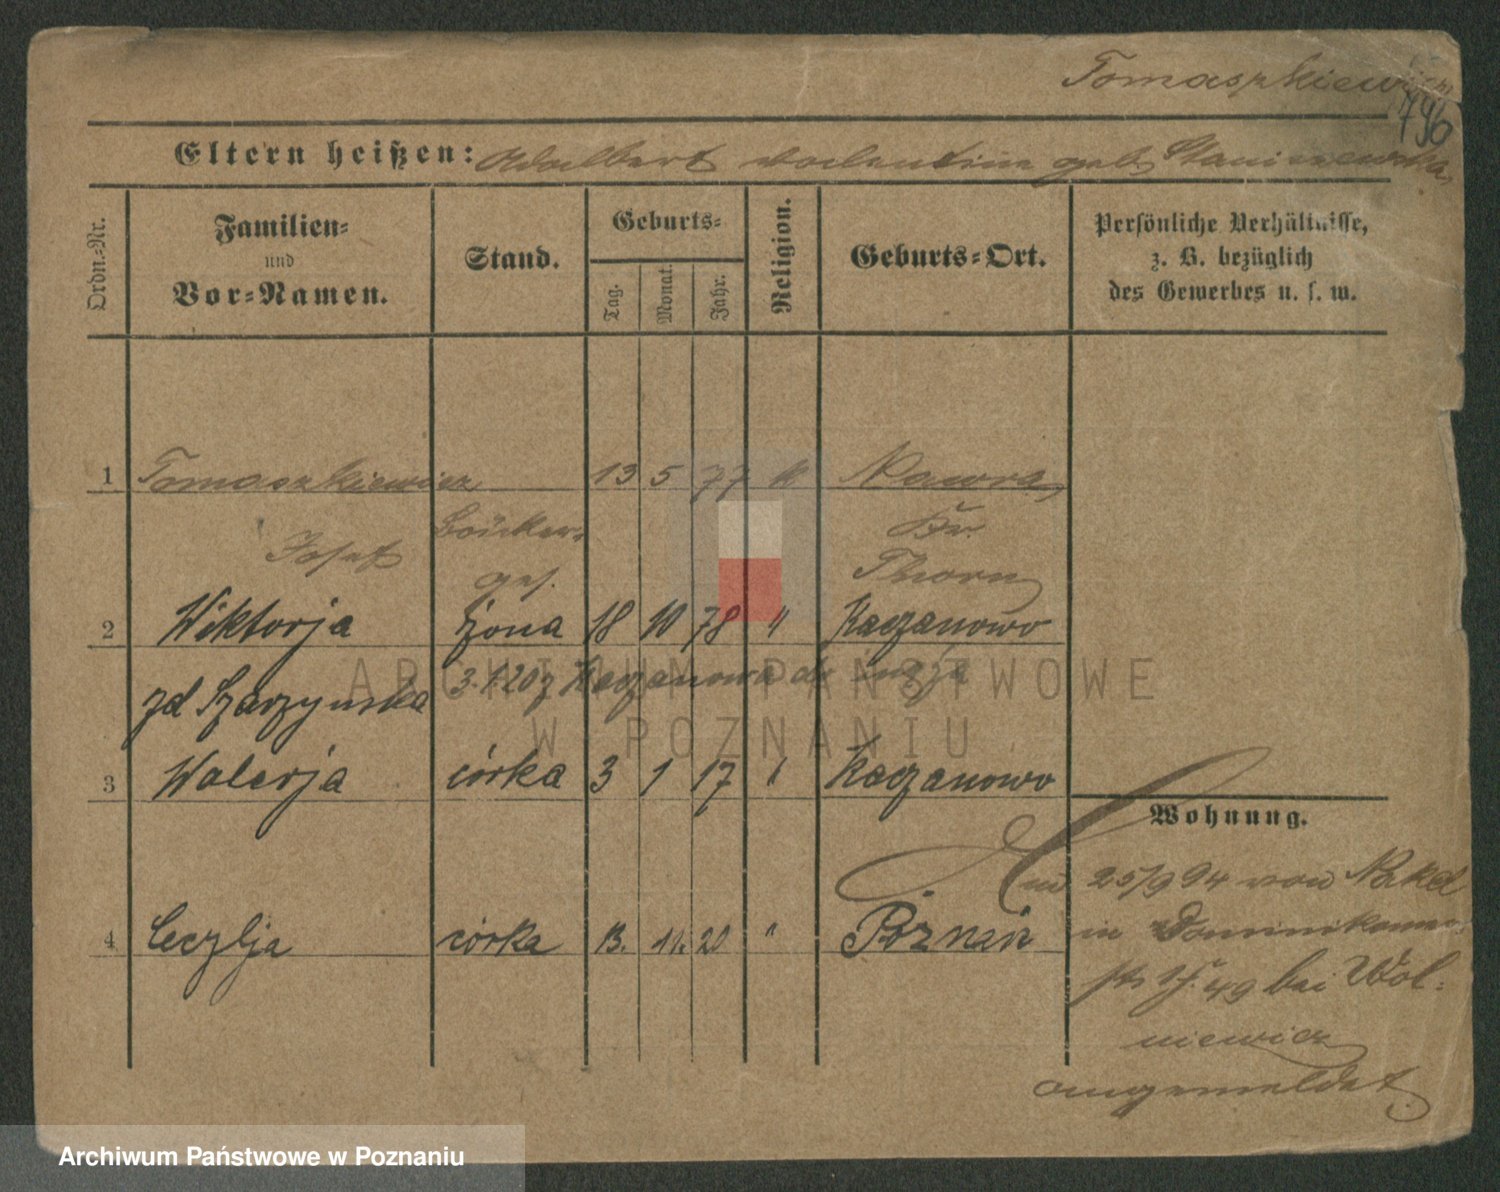 Tomaszkiewicz
796
Eltern heißen: Adalbert Valentine geb Staniszewska
Ordn.-Nr.
Familien-
und
Vor-Namen.
Stand.
Geburts-
Tag.
Monat.
Jahr.
Religion.
Geburts-Ort.
Persönliche Verhältnisse,
z. B. bezüglich
des Gewerbes u. s. w.
1 Tomaszkiewicz 13 5 77 k Nawra,
Josef Böcker- Kr.
ges. Thorn
2 Wiktorja żona 18 10 78 " Kaczanowo
zd Szarzyńska 3.1.20 z Kaczanowa
3 Walerja córka 3 1 17 " Kaczanowo
Wohnung.
4 Cecylja córka 13. 11. 20 " Poznań
25/9 94 von
in Dominikaner-
49 bei Wol-
niewicz
angemeldet
ARCHIWUM PAŃSTWOWE
W POZNANIU
Archiwum Państwowe w Poznaniu